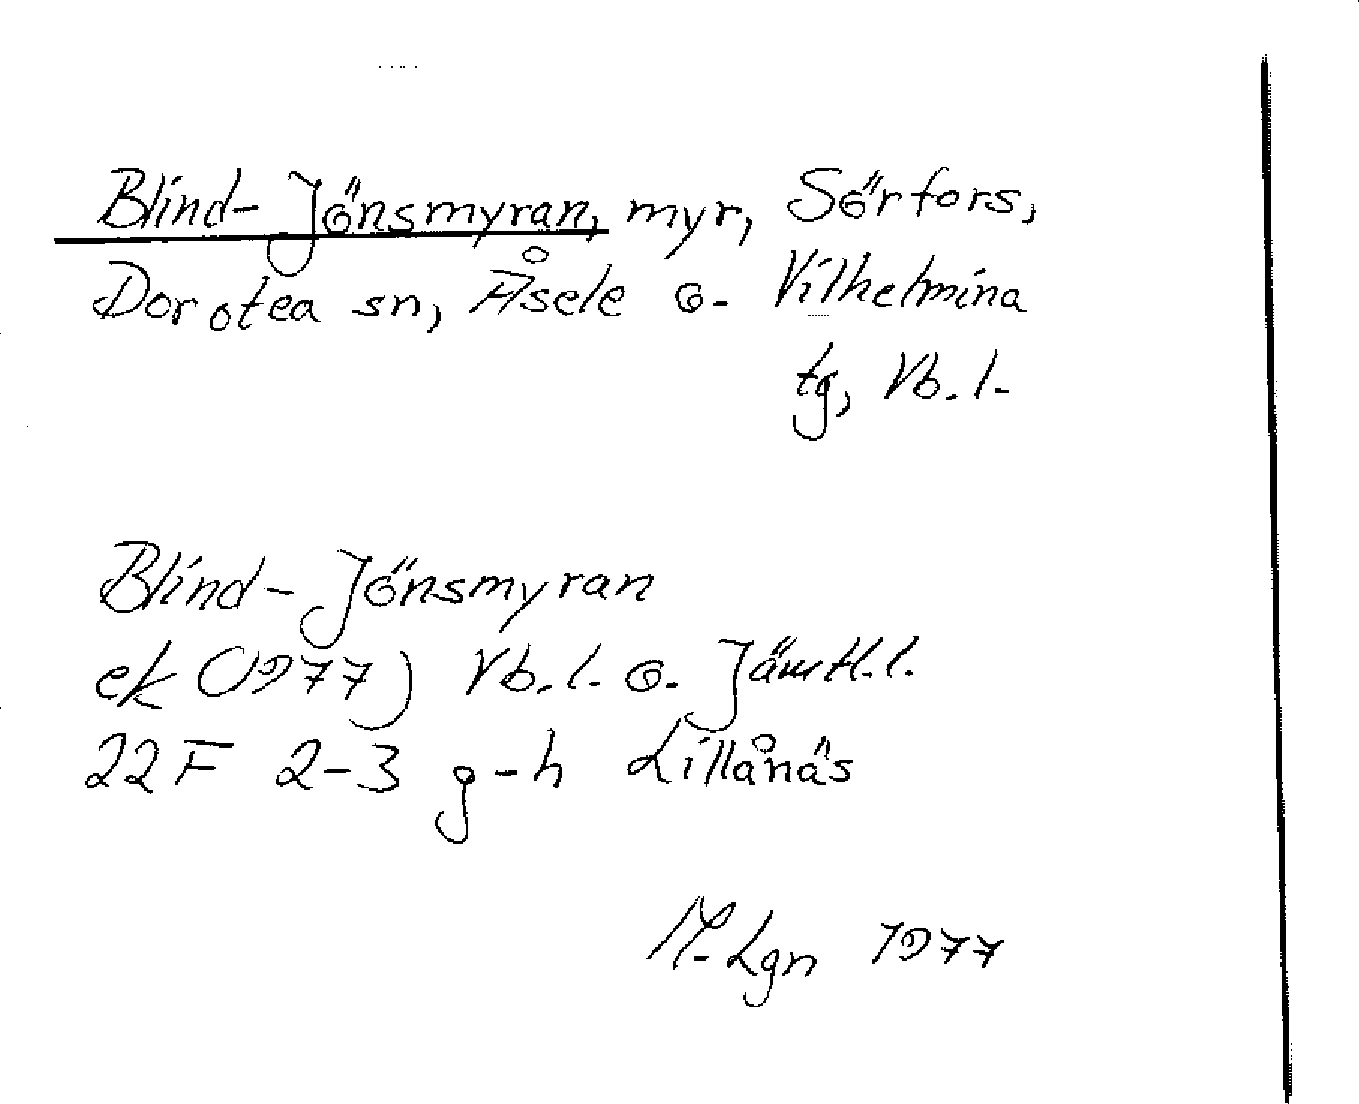 Blind-Jönsmyran, myr, Sörfors,
Dorotea sn, Åsele o. Vilhelmina
tg, Vb. l.
Blind-Jönsmyran
ek (1977) Vb. l. o. Jämtl. l.
22 F 2-3 g-h Lillånäs
M. Lgn 1977